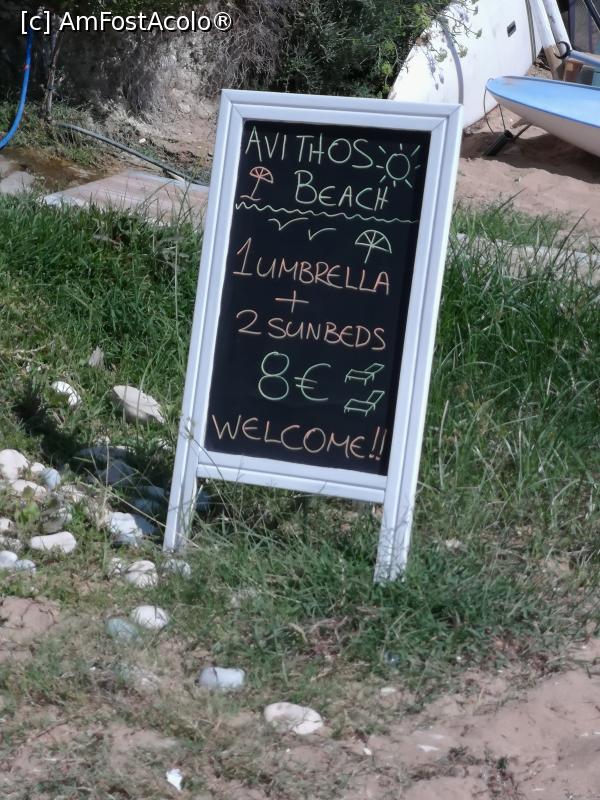 [c] AmFostAcolo®
AVITHOS
BEACH
1 UMBRELLA
+
2 SUNBEDS
8€
WELCOME!!